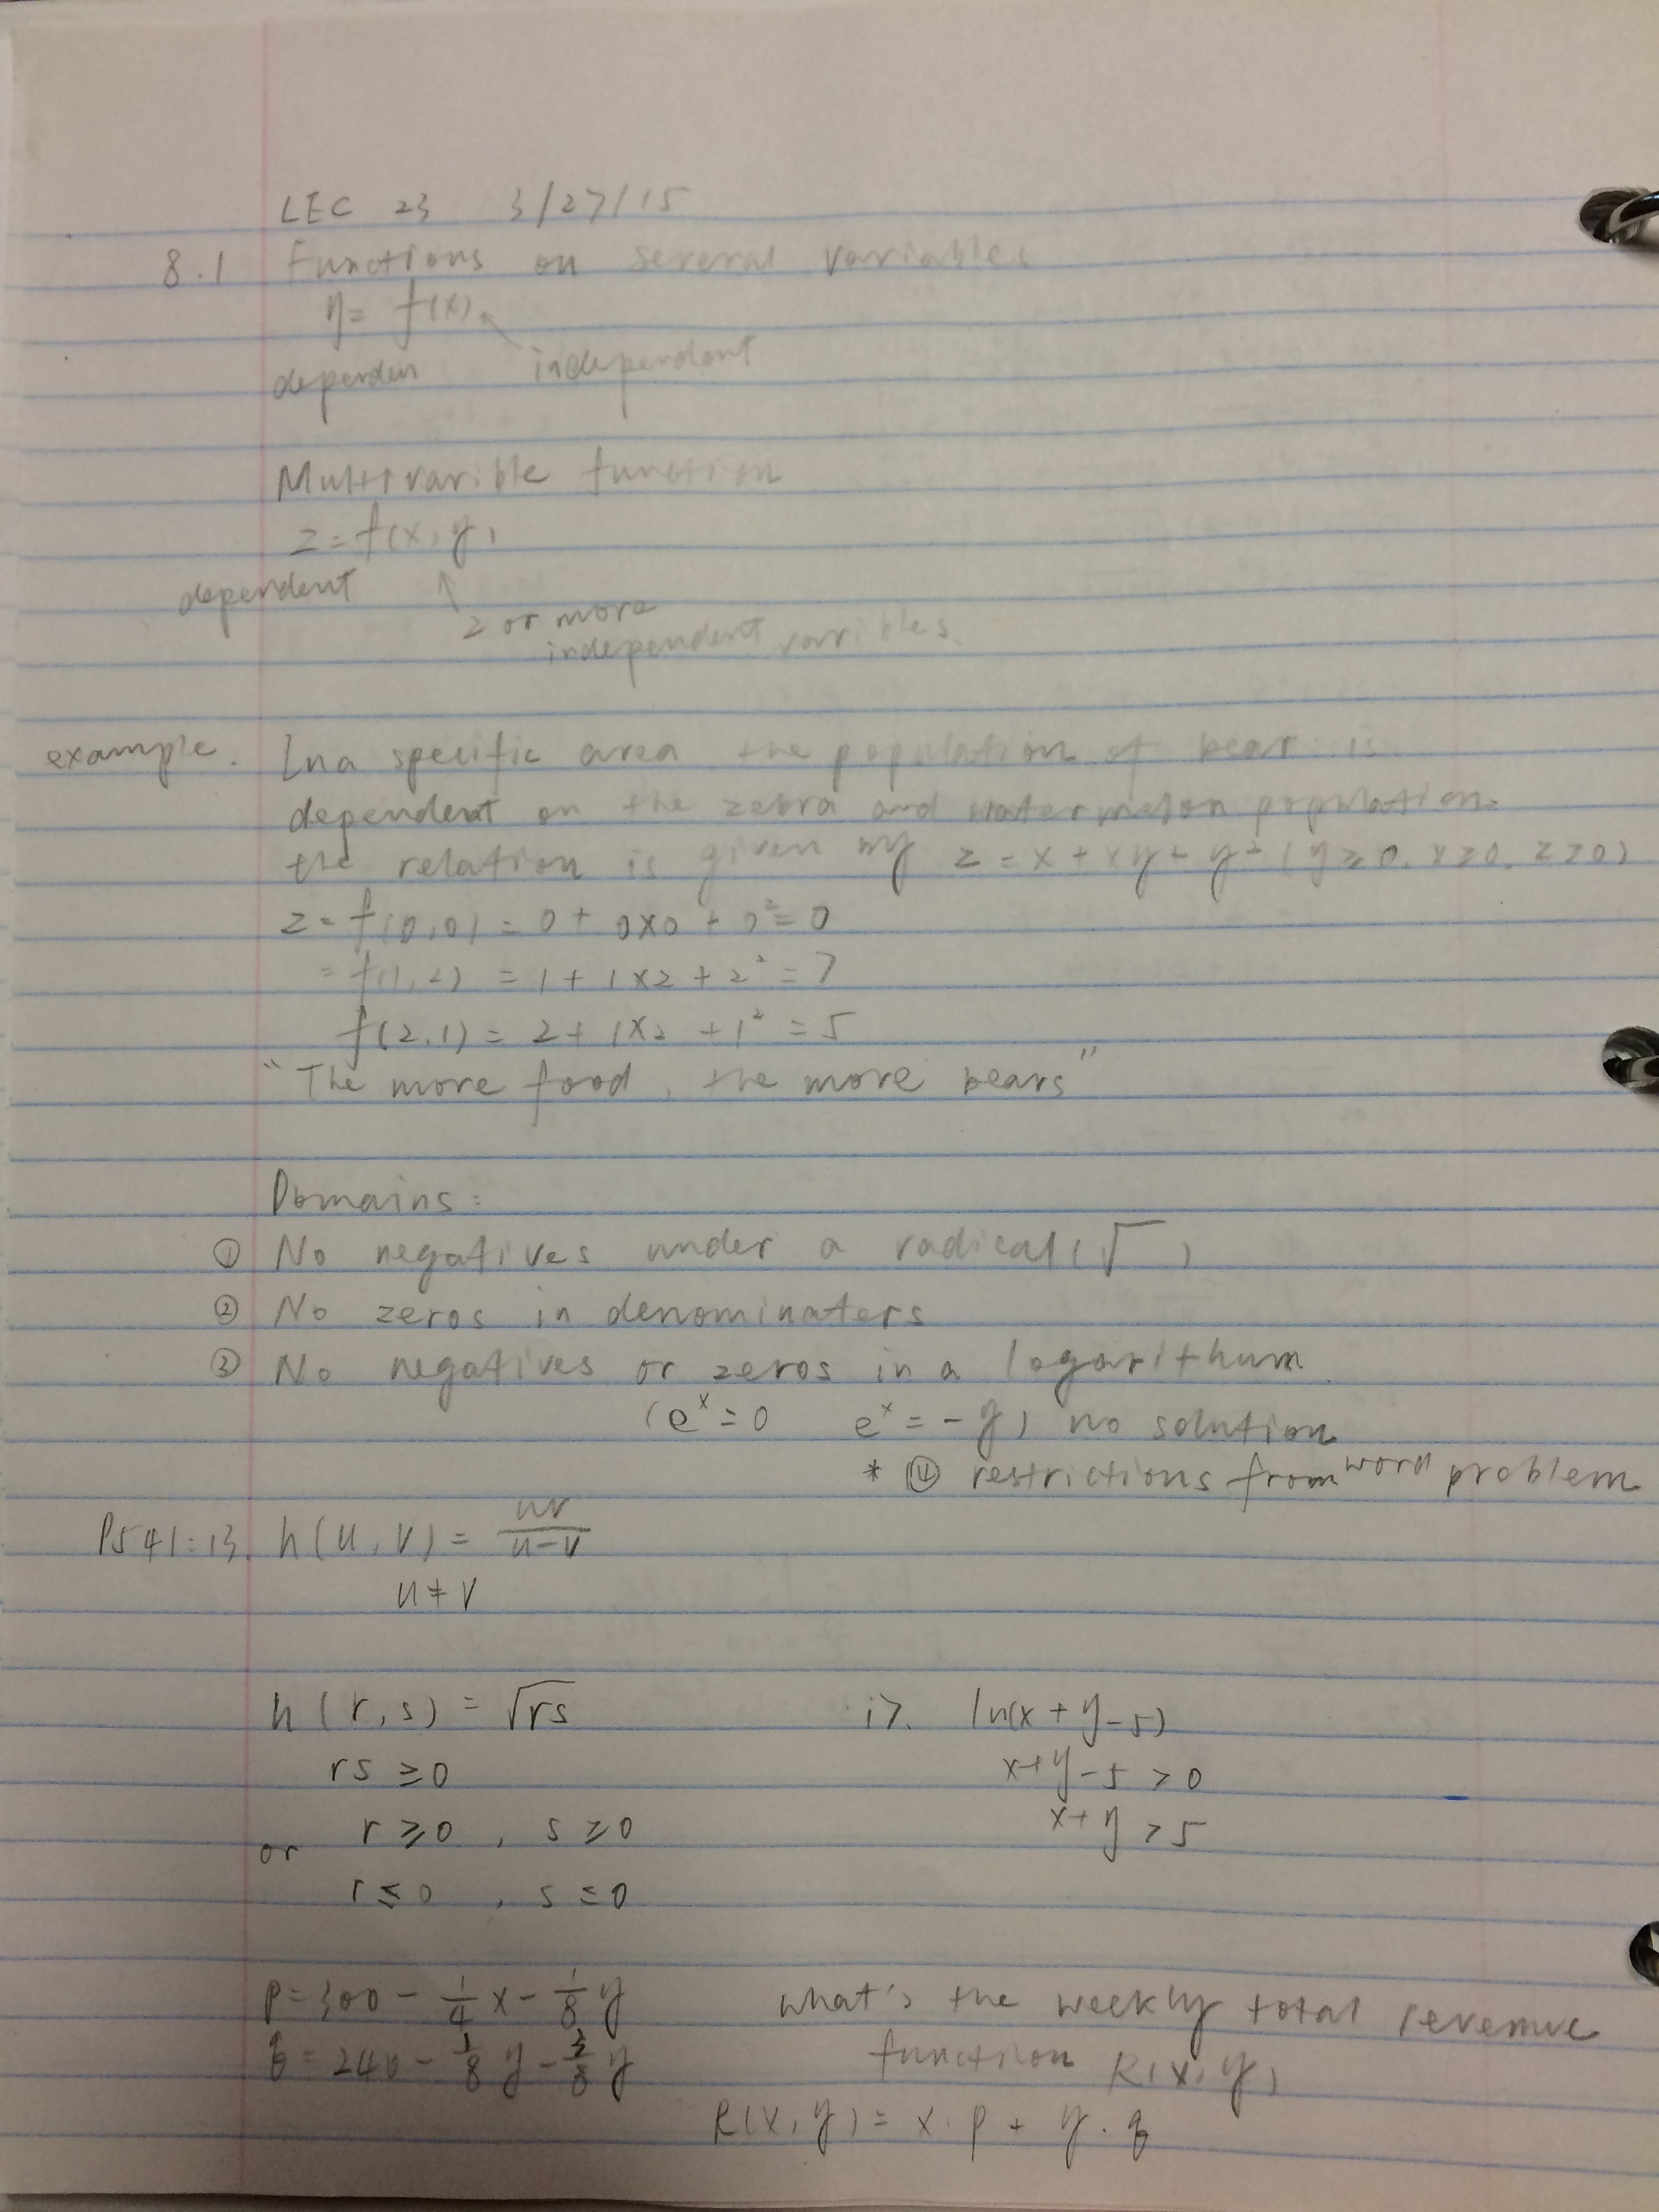 LEC 23 3/27/15
8.1 Functions on several variables
y= f(x)
dependen independent
Multivarible function
z=f(x,y)
dependent
2 or more
independent varibles.
example. In a specific area the population of bear is
dependent on the zebra and watermelon population.
the relation is given by z = x + xy + y² (y≥0, x≥0, z≥0)
z = f(0,0) = 0 + 0x0 + 0² = 0
= f(1,2) = 1 + 1x2 + 2² = 7
f(2,1) = 2 + 1x2 + 1² = 5
"The more food, the more bears"
Domains:
① No negatives under a radical (√ )
② No zeros in denominaters
③ No negatives or zeros in a logarithum
(eˣ = 0 eˣ = -y) no solution
* ④ restrictions from word problem
P541:13. h(u,v) = uv/(u-v)
u ≠ v
h(r,s) = √rs 17. ln(x+y-5)
rs ≥ 0 x+y-5 > 0
r ≥ 0, s ≥ 0 x+y > 5
or
r ≤ 0, s ≤ 0
P = 300 - 1/4 x - 1/8 y what's the weekly total revenue
q = 240 - 1/8 y - 3/8 y function R(x,y)
R(x,y) = x·p + y·q